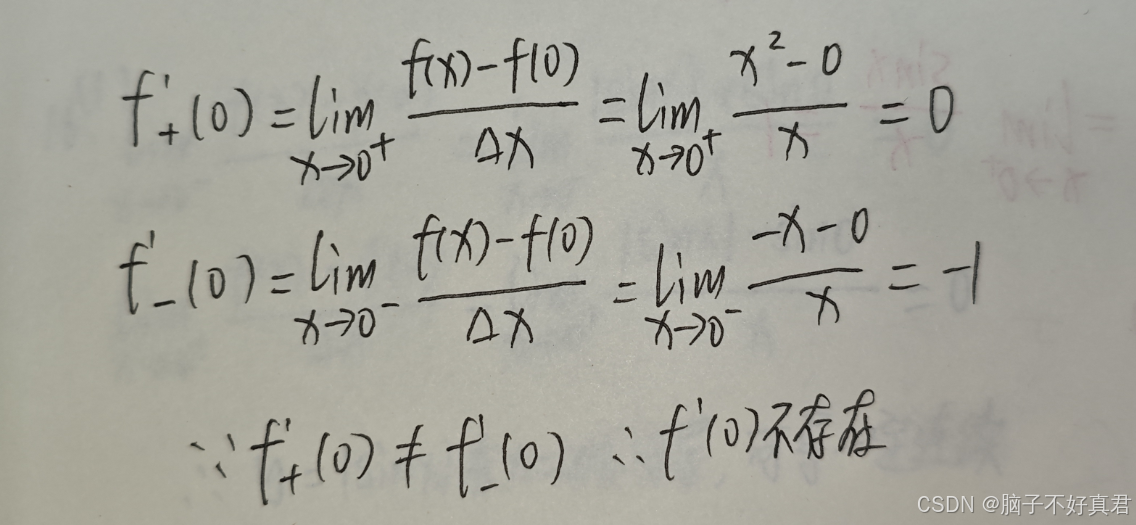 f'₊(0) = lim_{x→0⁺} (f(x)-f(0))/Δx = lim_{x→0⁺} (x²-0)/x = 0
f'₋(0) = lim_{x→0⁻} (f(x)-f(0))/Δx = lim_{x→0⁻} (-x-0)/x = -1
∵ f'₊(0) ≠ f'₋(0) ∴ f'(0)不存在
CSDN @脑子不好真君